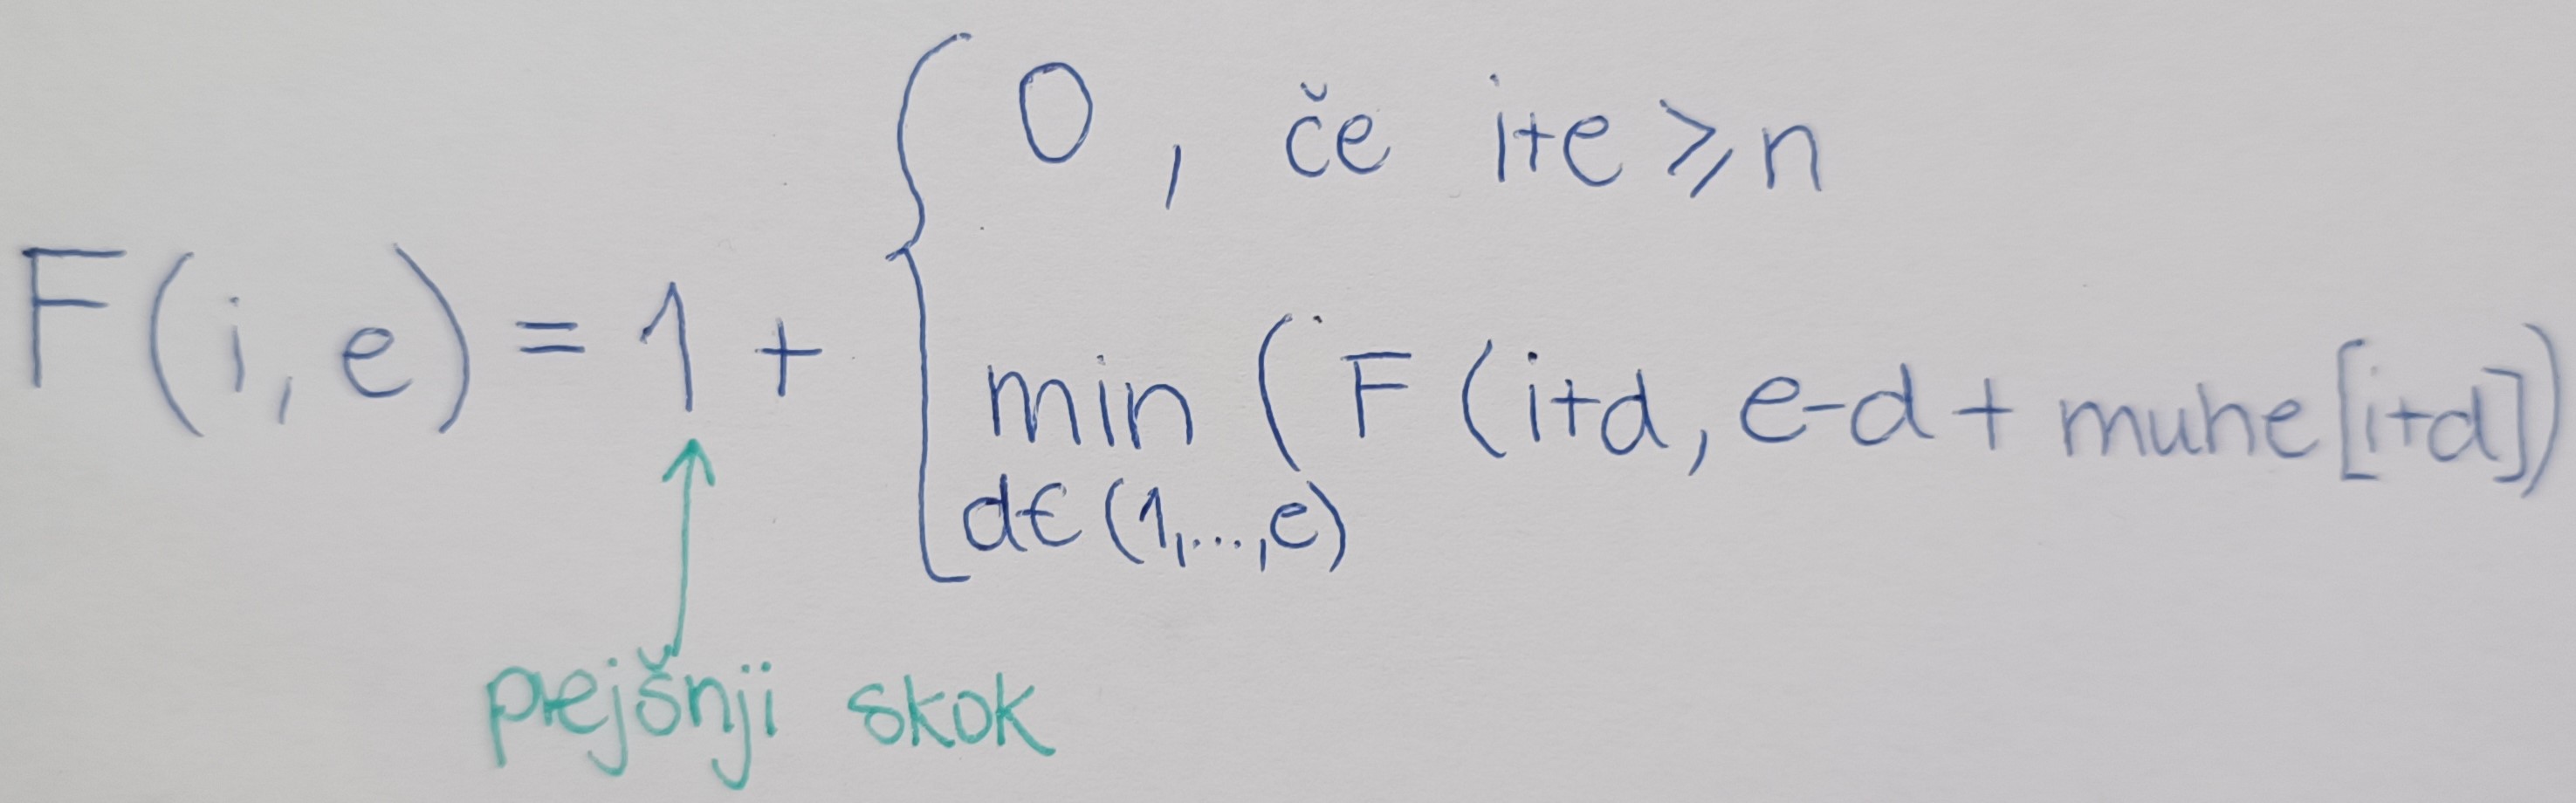 F(i, e) = 1 + { 0 , če i+e ⩾ n
min ( F (i+d, e-d + muhe[i+d])
d∈ (1,...,e)
prejšnji skok